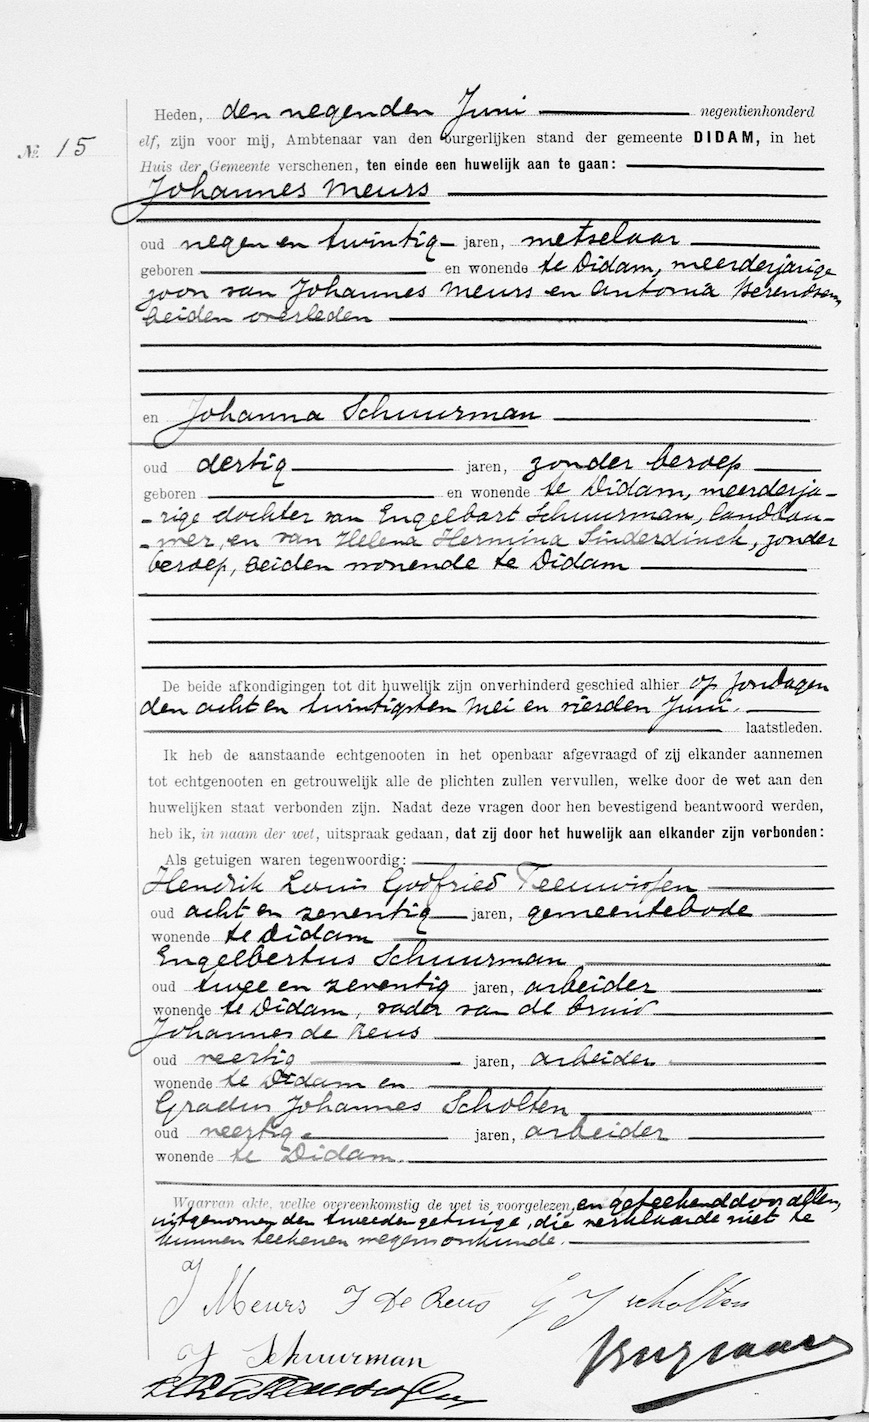 Heden, den negenden Juni negentienhonderd
elf, zijn voor mij, Ambtenaar van den burgerlijken stand der gemeente DIDAM, in het
№. 15
Huis der Gemeente verschenen, ten einde een huwelijk aan te gaan:
Johannes Meurs
oud negen en twintig jaren, metselaar
geboren en wonende te Didam, meerderjarige
zoon van Johannes Meurs en Antonia Berendsen,
beiden overleden
en Johanna Schuurman
oud dertig jaren, zonder beroep
geboren en wonende te Didam, meerderja-
-rige dochter van Engelbart Schuurman, landbou-
-wer, en van Helena Hermina Sinderdinck, zonder
beroep, beiden wonende te Didam
De beide afkondigingen tot dit huwelijk zijn onverhinderd geschied alhier op zondagen
den acht en twintigsten Mei en vierden Juni.
laatstleden.
Ik heb de aanstaande echtgenooten in het openbaar afgevraagd of zij elkander aannemen
tot echtgenooten en getrouwelijk alle de plichten zullen vervullen, welke door de wet aan den
huwelijken staat verbonden zijn. Nadat deze vragen door hen bevestigend beantwoord werden,
heb ik, in naam der wet, uitspraak gedaan, dat zij door het huwelijk aan elkander zijn verbonden:
Als getuigen waren tegenwoordig:
Hendrik Louis Godfried Teeuwissen
oud acht en zeventig jaren, gemeentebode
wonende te Didam
Engelbertus Schuurman
oud twee en zeventig jaren, arbeider
wonende te Didam, vader van de bruid
Johannes de Reus
oud veertig jaren, arbeider
wonende te Didam en
Gradus Johannes Scholten
oud veertig jaren, arbeider
wonende te Didam.
Waarvan akte, welke overeenkomstig de wet is voorgelezen, en geteekend door allen,
uitgenomen den tweeden getuige, die verklaarde niet te
kunnen teekenen wegens onkunde.
J Meurs J De Reus G J Scholten
J Schuurman